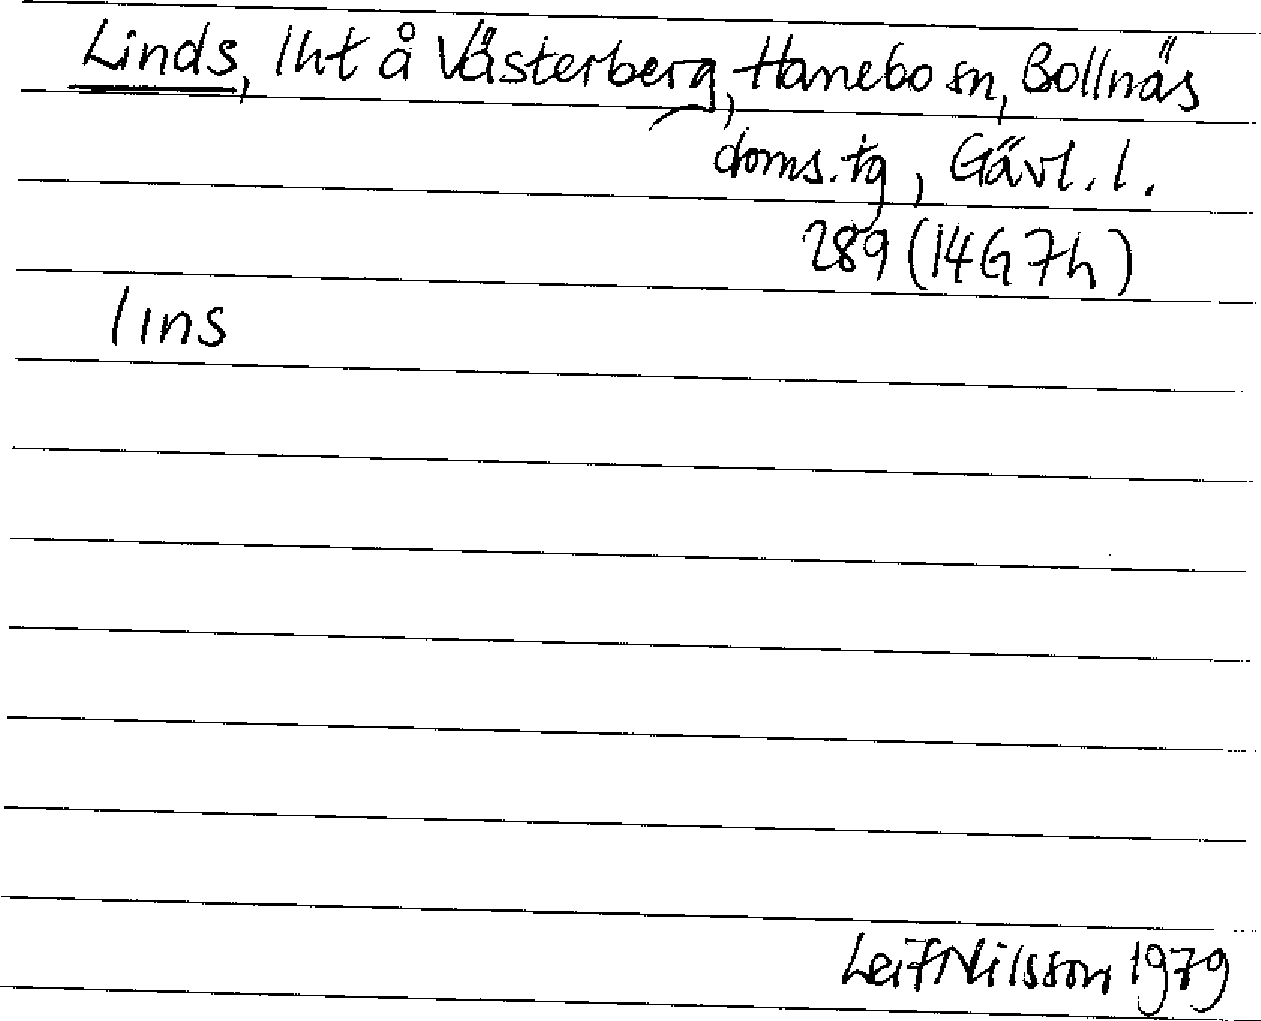 Linds, lht å Västerberg, Hanebo sn, Bollnäs
doms. tg, Gävl. l.
289 (14G 7h)
lins
Leif Nilsson 1979